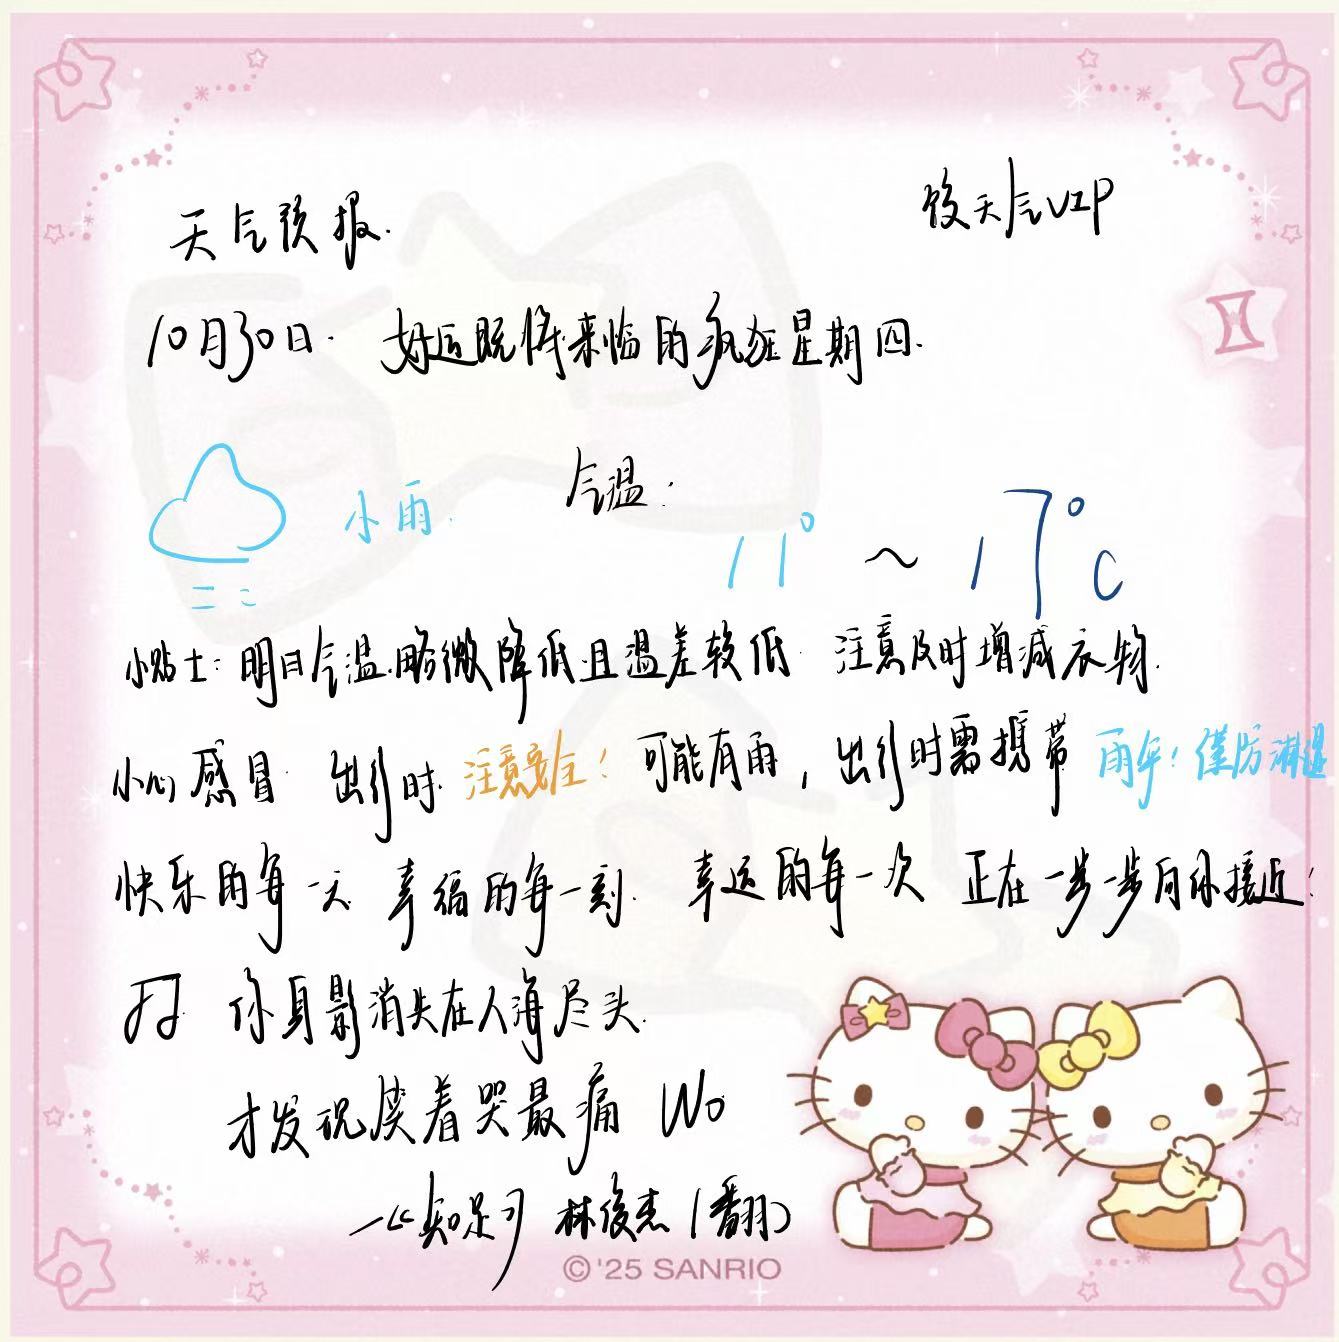 天气预报.
饺天气VIP
10月30日. 好运既将来临的疯狂星期四.
小雨. 气温: 11° ~ 17°C
小贴士: 明日气温略微降低且温差较低 注意及时增减衣物.
小心感冒 出行时 注意安全! 可能有雨, 出行时需携带 雨伞! 谨防淋湿
快乐的每一天 幸福的每一刻. 幸运的每一次 正在一步一步向你接近!
你身影消失在人海尽头.
才发现笑着哭最痛 Wo
—《知足》 林俊杰 (翻)
©'25 SANRIO